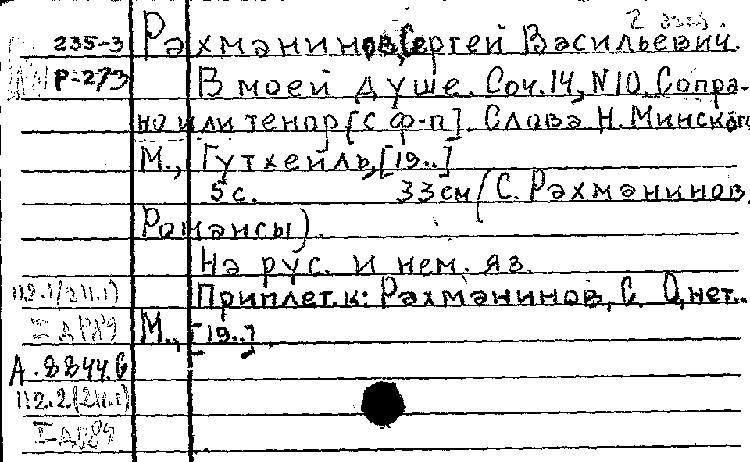 2 экз.
235-3 Рахманинов, Сергей Васильевич.
Р-273 В моей душе. Соч. 14, N10. Сопра-
но или тенор [с ф-п]. Слова Н. Минского
М., Гутхейль, [19..]
5 с. 33 см (С. Рахманинов.
Романсы).
На рус. и нем. яз.
112.1/211.1) Приплет. к: Рахманинов, С. О, нет..
М., [19..].
А.8844.6
112.2(211.1)